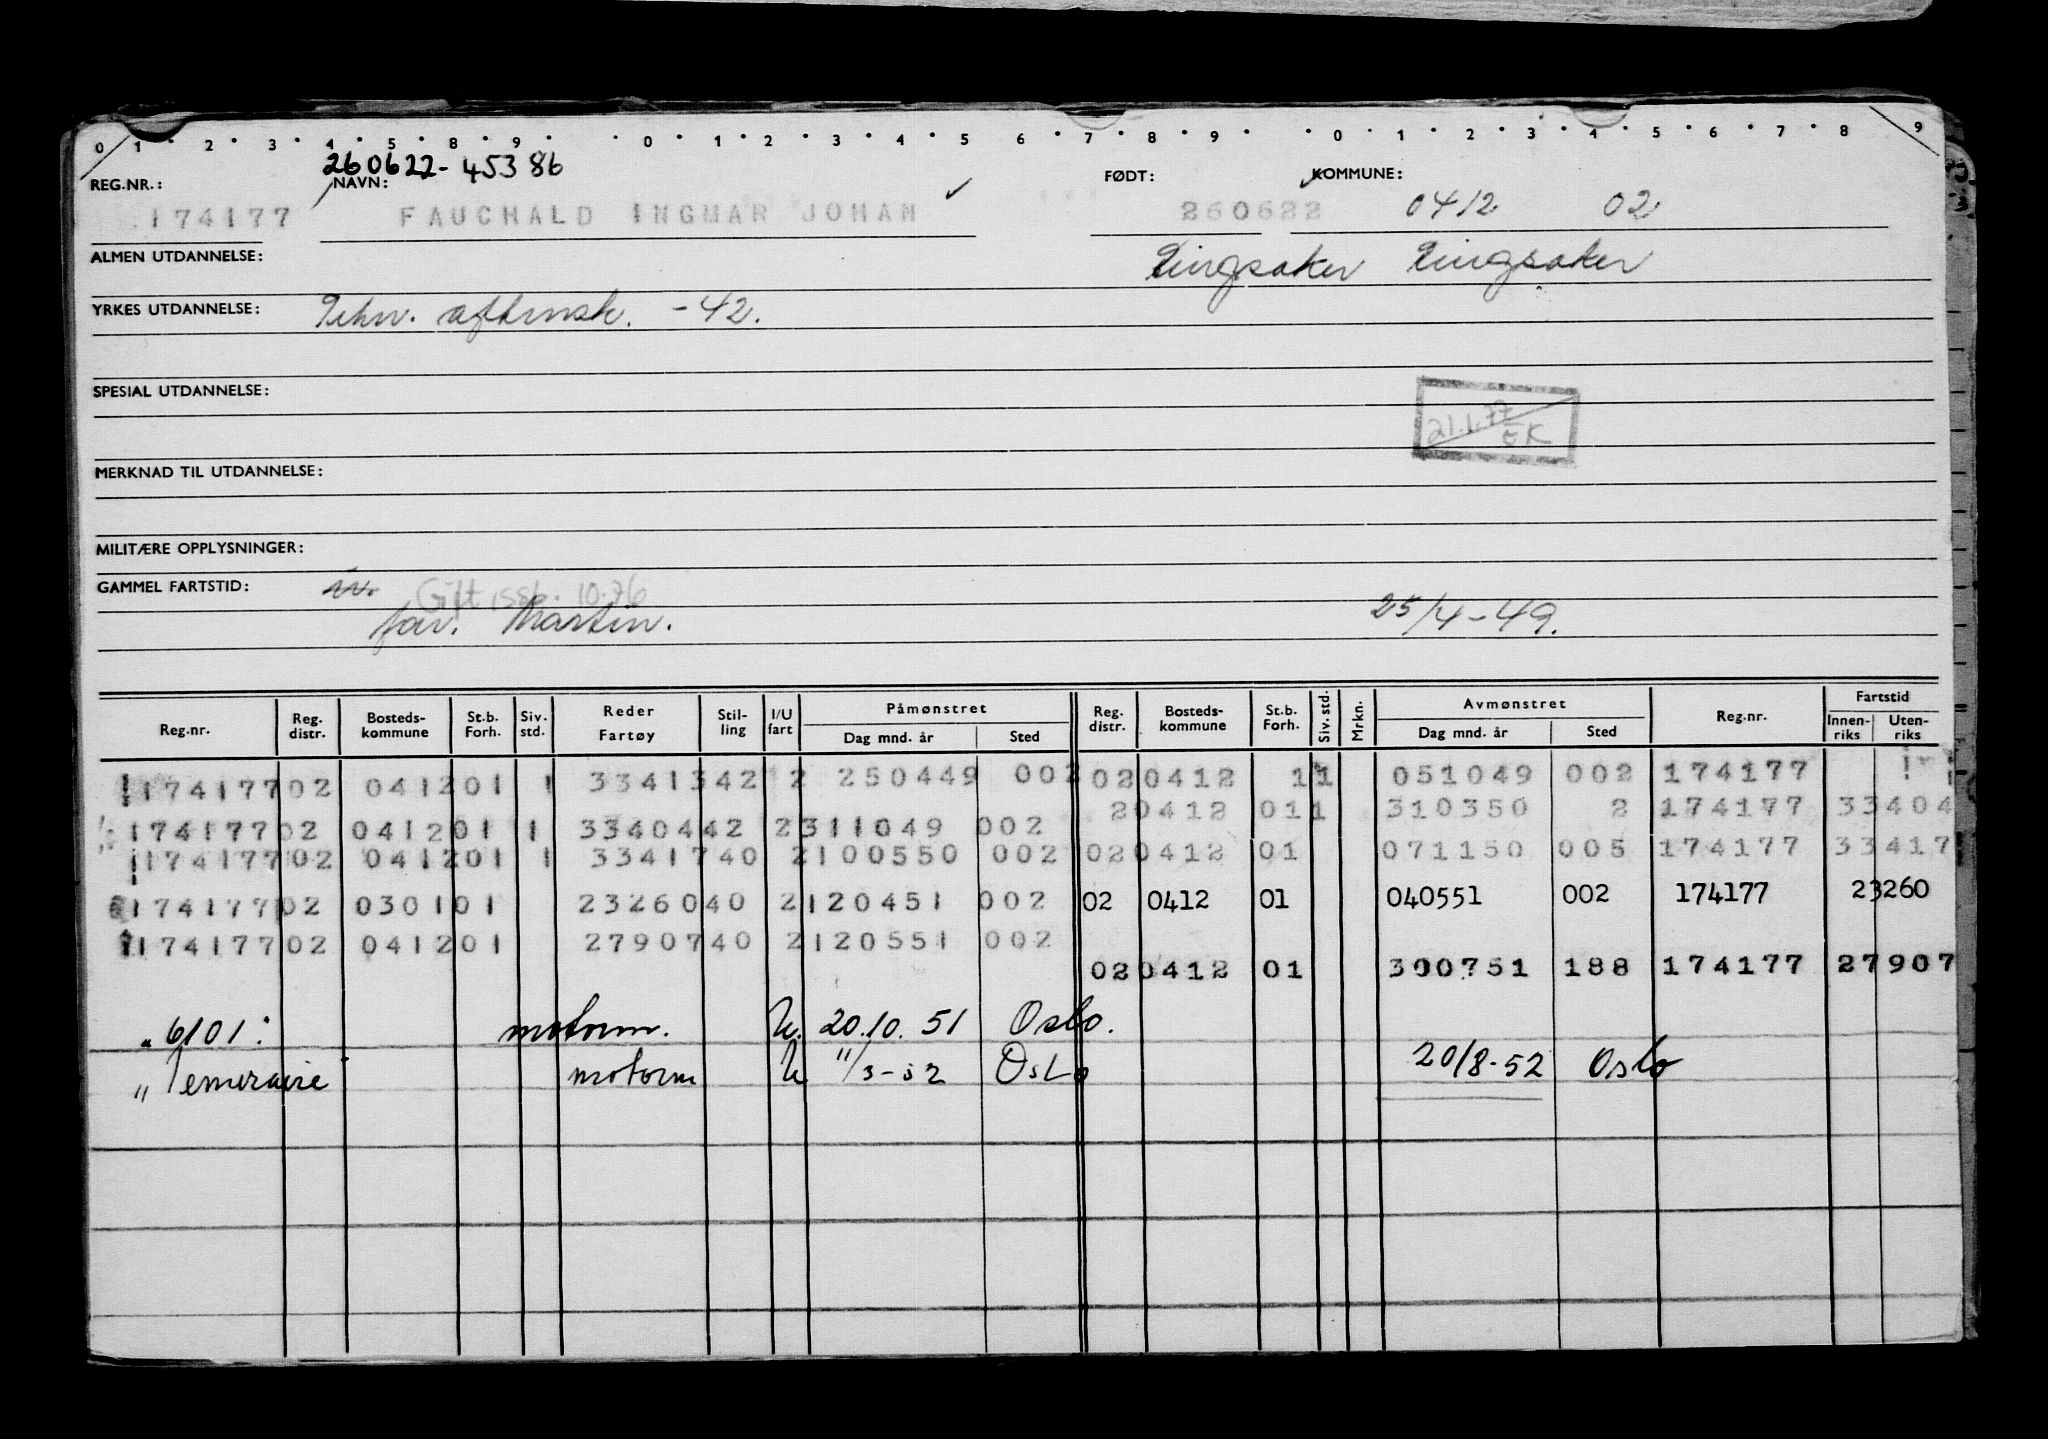 0 1 2 3 4 5 8 9 0 1 2 3 4 5 6 7 8 9 0 1 2 3 4 5 6 7 8 9
260622-45386
REG.NR.: NAVN: FØDT: KOMMUNE:
174177 FAUCHALD INGMAR JOHAN 260622 0412 02
ALMEN UTDANNELSE: Ringsaker Ringsaker
YRKES UTDANNELSE: Tekn. aftensk. -42.
SPESIAL UTDANNELSE:
21.1.77
EK
MERKNAD TIL UTDANNELSE:
MILITÆRE OPPLYSNINGER:
GAMMEL FARTSTID: Gift 10.76
far. Martin. 25/4-49.
Reg.nr. Reg. distr. Bosteds-kommune St.b. Forh. Siv. std. Reder Fartøy Stil-ling I/U fart Påmønstret Dag mnd. år Sted Reg. distr. Bosteds-kommune St.b. Forh. Siv. std. Mrkn. Avmønstret Dag mnd. år Sted Reg.nr. Fartstid Innen-riks Uten-riks
174177 02 0412 01 1 33413 42 2 250449 002 02 0412 1 1 051049 002 174177
2 0412 01 1 310350 2 174177 33404
174177 02 0412 01 1 33404 42 2 311049 002
174177 02 0412 01 1 33417 40 2 100550 002 02 0412 01 071150 005 174177 33417
174177 02 0301 01 23260 40 2 120451 002 02 0412 01 040551 002 174177 23260
174177 02 0412 01 27907 40 2 120551 002
02 0412 01 300751 188 174177 27907
" 6101: motorm. U. 20.10.51 Oslo.
" Temeraire motorm U 11/3-52 Oslo 20/8-52 Oslo